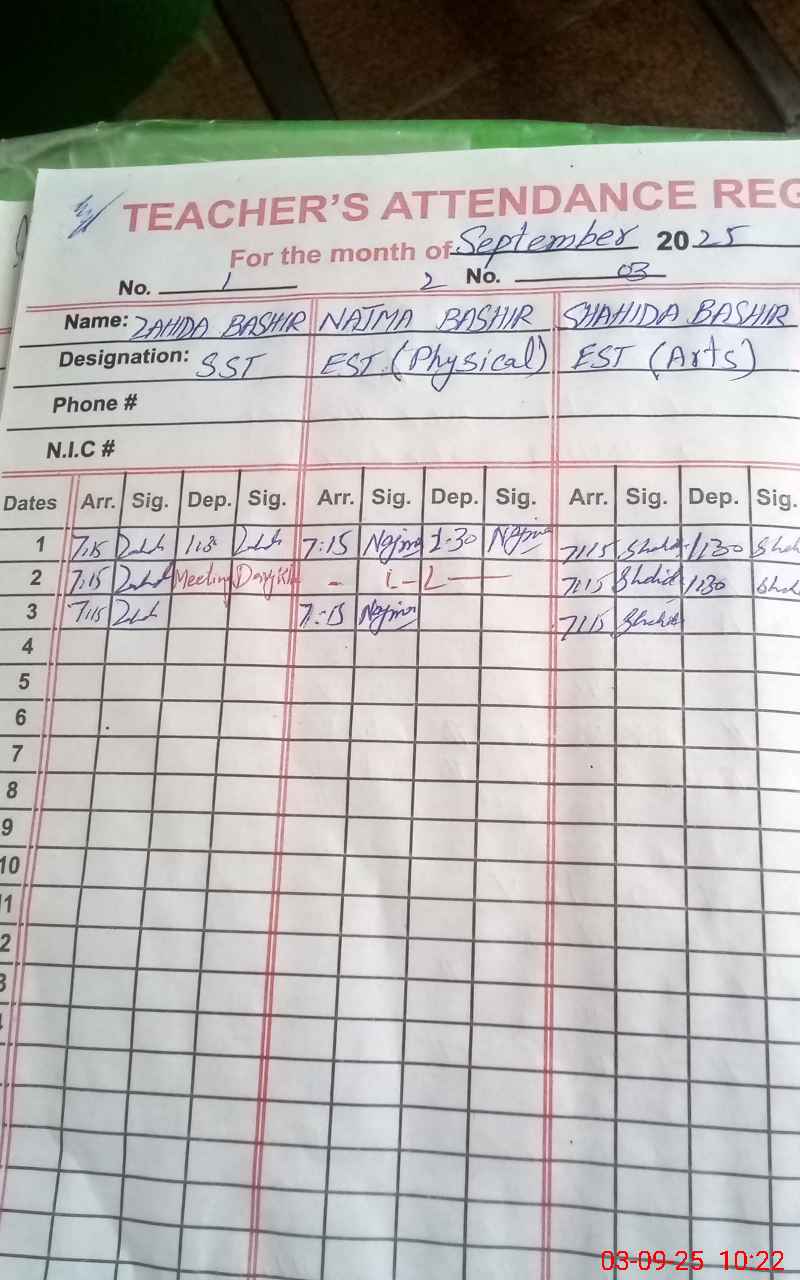 TEACHER'S ATTENDANCE REG
For the month of September 2025
No. 1 2 No. 03
Name: ZAHIDA BASHIR NAJMA BASHIR SHAHIDA BASHIR
Designation: SST EST (Physical) EST (Arts)
Phone #
N.I.C #
Dates Arr. Sig. Dep. Sig. Arr. Sig. Dep. Sig. Arr. Sig. Dep. Sig.
1 7:15 1:30 7:15 Najma 1:30 Najma 7:15 Shahid 1:30 Shah
2 7:15 Meeting - i - L - 7:15 Shahid 1:30 Shah
3 7:15 7:15 Najma 7:15 Shahid
4
5
6
7
8
9
10
1
2
3
03-09-25 10:22